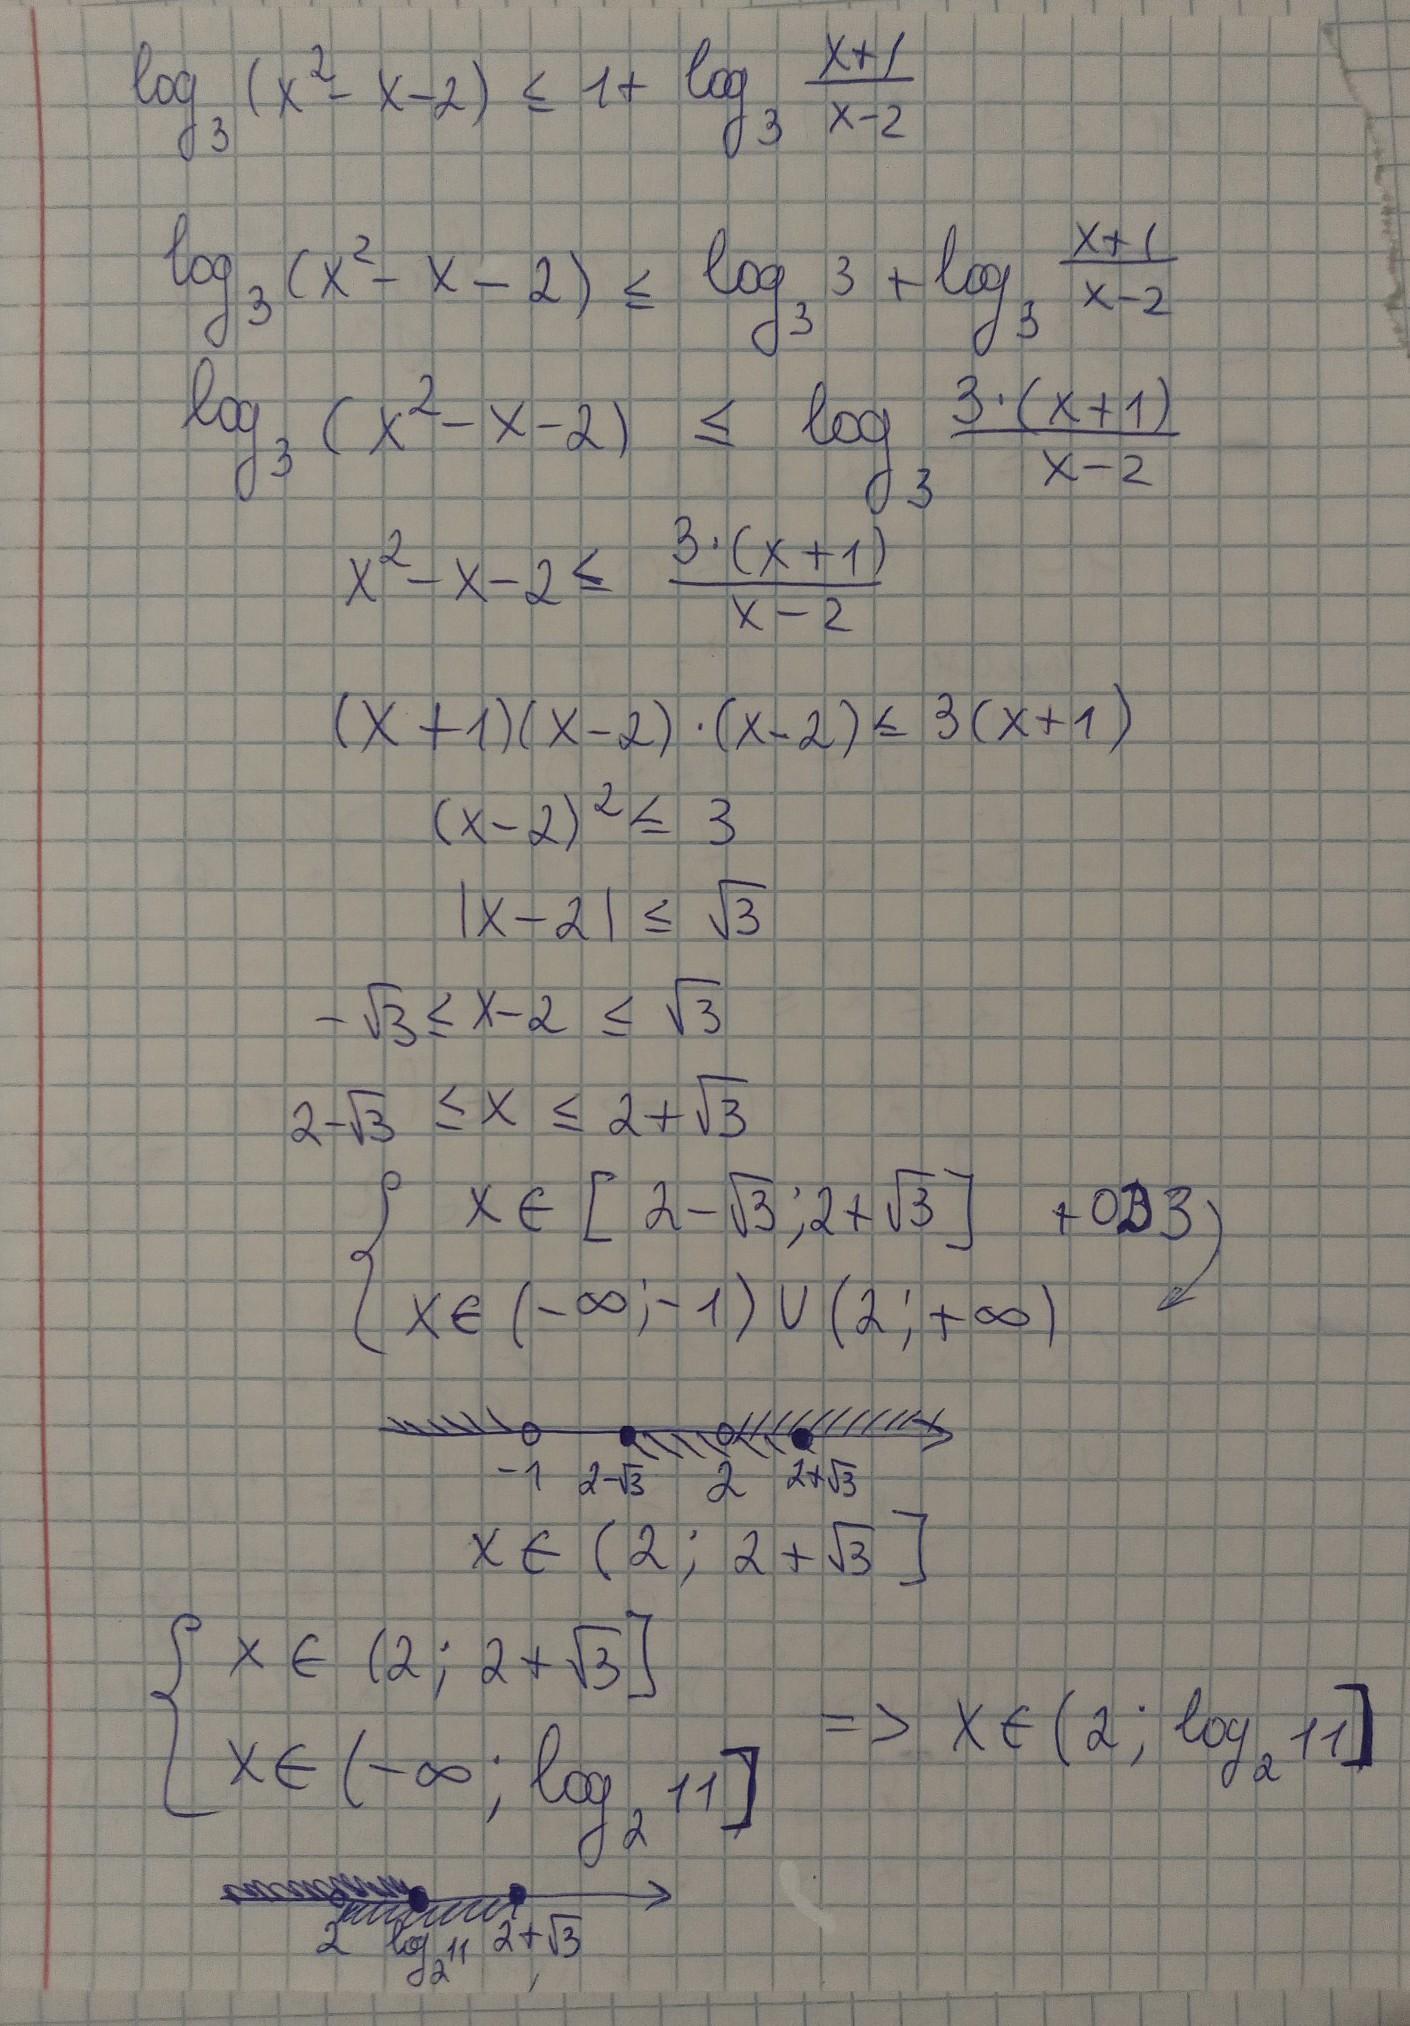 log₃(x² - x - 2) ≤ 1 + log₃ (x+1)/(x-2)
log₃(x² - x - 2) ≤ log₃ 3 + log₃ (x+1)/(x-2)
log₃(x² - x - 2) ≤ log₃ (3·(x+1))/(x-2)
x² - x - 2 ≤ (3·(x+1))/(x-2)
(x+1)(x-2)·(x-2) ≤ 3(x+1)
(x-2)² ≤ 3
|x-2| ≤ √3
-√3 ≤ x-2 ≤ √3
2-√3 ≤ x ≤ 2+√3
{ x ∈ [2-√3; 2+√3] + ОДЗ
x ∈ (-∞; -1) ∪ (2; +∞)
-1 2-√3 2 2+√3
x ∈ (2; 2+√3]
{ x ∈ (2; 2+√3]
x ∈ (-∞; log₂ 11] => x ∈ (2; log₂ 11]
2 log₂11 2+√3